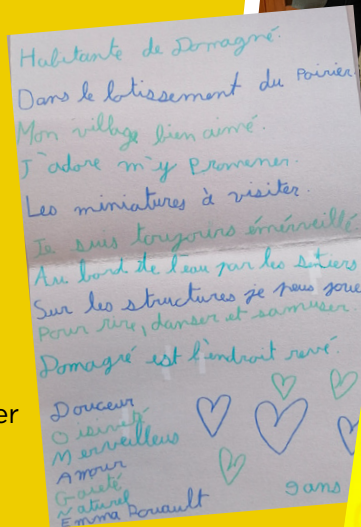 Habitante de Domagné.
Dans le lotissement du Poirier.
Mon village bien aimé.
J'adore m'y Promener.
Les miniatures à visiter.
Je suis toujours émerveillé
Au bord de l'eau par les sentiers
Sur les structures je peus joue
Pour rire, danser et samuser.
Domagné est l'endroit revé.
Douceur
Merveilleus
Amour
Gaieté
Naturel
Emma Rouault
9 ans
er